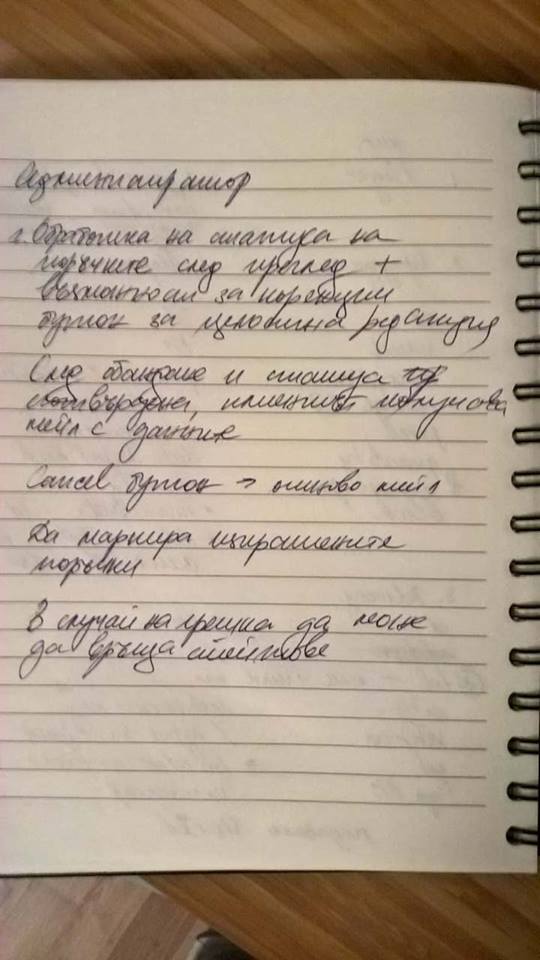 Администратор
1. Обработка на статуса на
поръчките след преглед +
възможност за корекции
бутон за цялостна редакция
След обаждане и статуса
потвърдена, клиентът получава
мейл с данните
Cancel бутон → отново мейл
Да маркира изпратените
поръчки
В случай на грешка да може
да връща стейтове